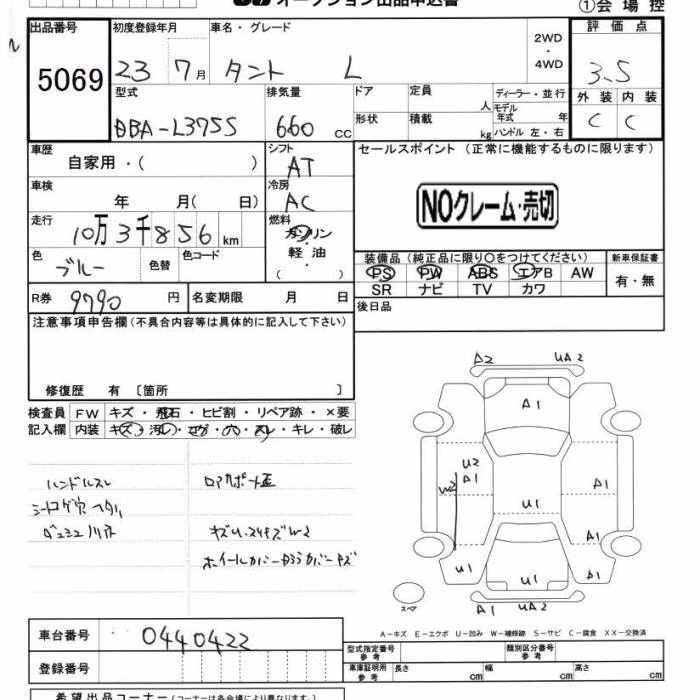 オークション出品申込書
①会場控
出品番号 初度登録年月 車名・グレード 2WD・4WD 評価点
5069 23 7月 タント L 3.5
型式 排気量 ドア 定員 人 ディーラー・並行 外装 内装
DBA-L375S 660 cc 形状 積載 kg モデル年式 年 ハンドル 左・右 C C
車歴 自家用・( ) シフト AT セールスポイント(正常に機能するものに限ります)
車検 年 月( 日) 冷房 AC
NOクレーム・売切
走行 10万3千856km 燃料 ガソリン
軽油
( )
色 ブルー 色替 色コード
装備品(純正品に限り〇をつけてください) 新車保証書
PS PW ABS エアB AW 有・無
SR ナビ TV カワ
R券 9790円 名変期限 月 日 後日品
注意事項申告欄(不具合内容等は具体的に記入して下さい)
修復歴 有 〔箇所 〕
検査員 FW キズ・飛石・ヒビ割・リペア跡・×要
記入欄 内装 キズ・汚レ・コゲ・穴・スレ・キレ・破レ
ハンドルスレ
シートコゲ穴ヘタリ
ロアサポート歪
W2
ホイールカバー
A2 UA2
A1
U2
A1
W2
A1
U1
A1
U1 U1 A1
A1 UA2
スペア
A-キズ E-エクボ U-凹み W-補修跡 S-サビ C-腐食 XX-交換済
車台番号 0440422
型式指定番号 参考 類別区分番号 参考
登録番号
車庫証明用 参考 長さ cm 幅 cm 高さ cm
希望出品コーナー(コーナーは各会場により異なります。)